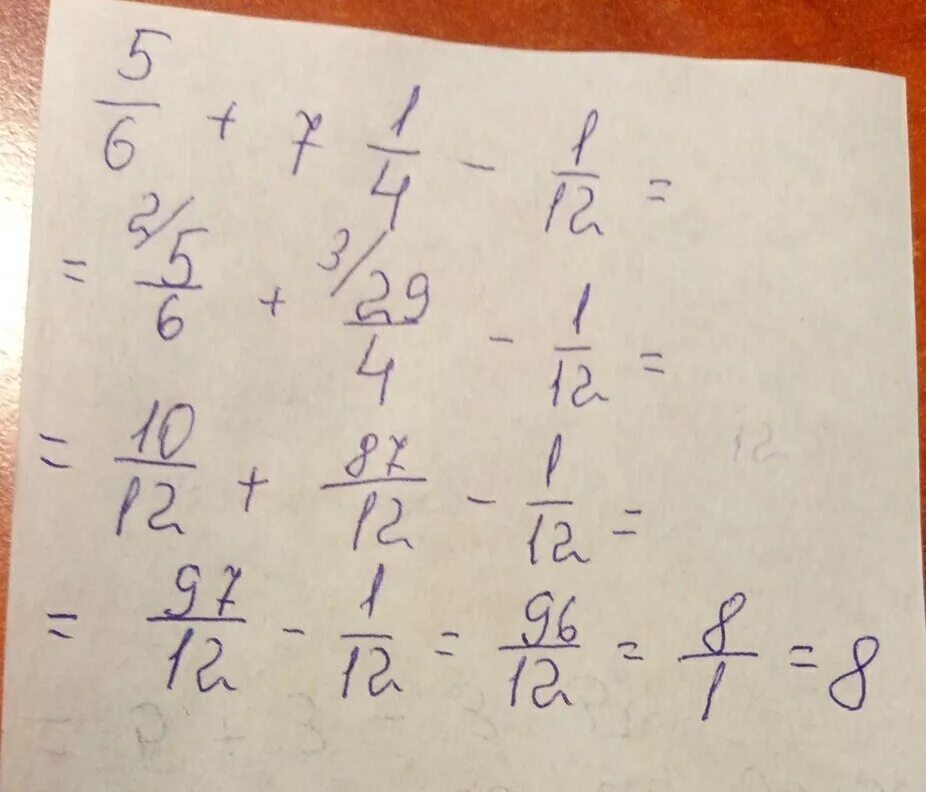 5/6 + 7 1/4 - 1/12 =
= 2/ 5/6 + 3/ 29/4 - 1/12 =
= 10/12 + 87/12 - 1/12 =
= 97/12 - 1/12 = 96/12 = 8/1 = 8